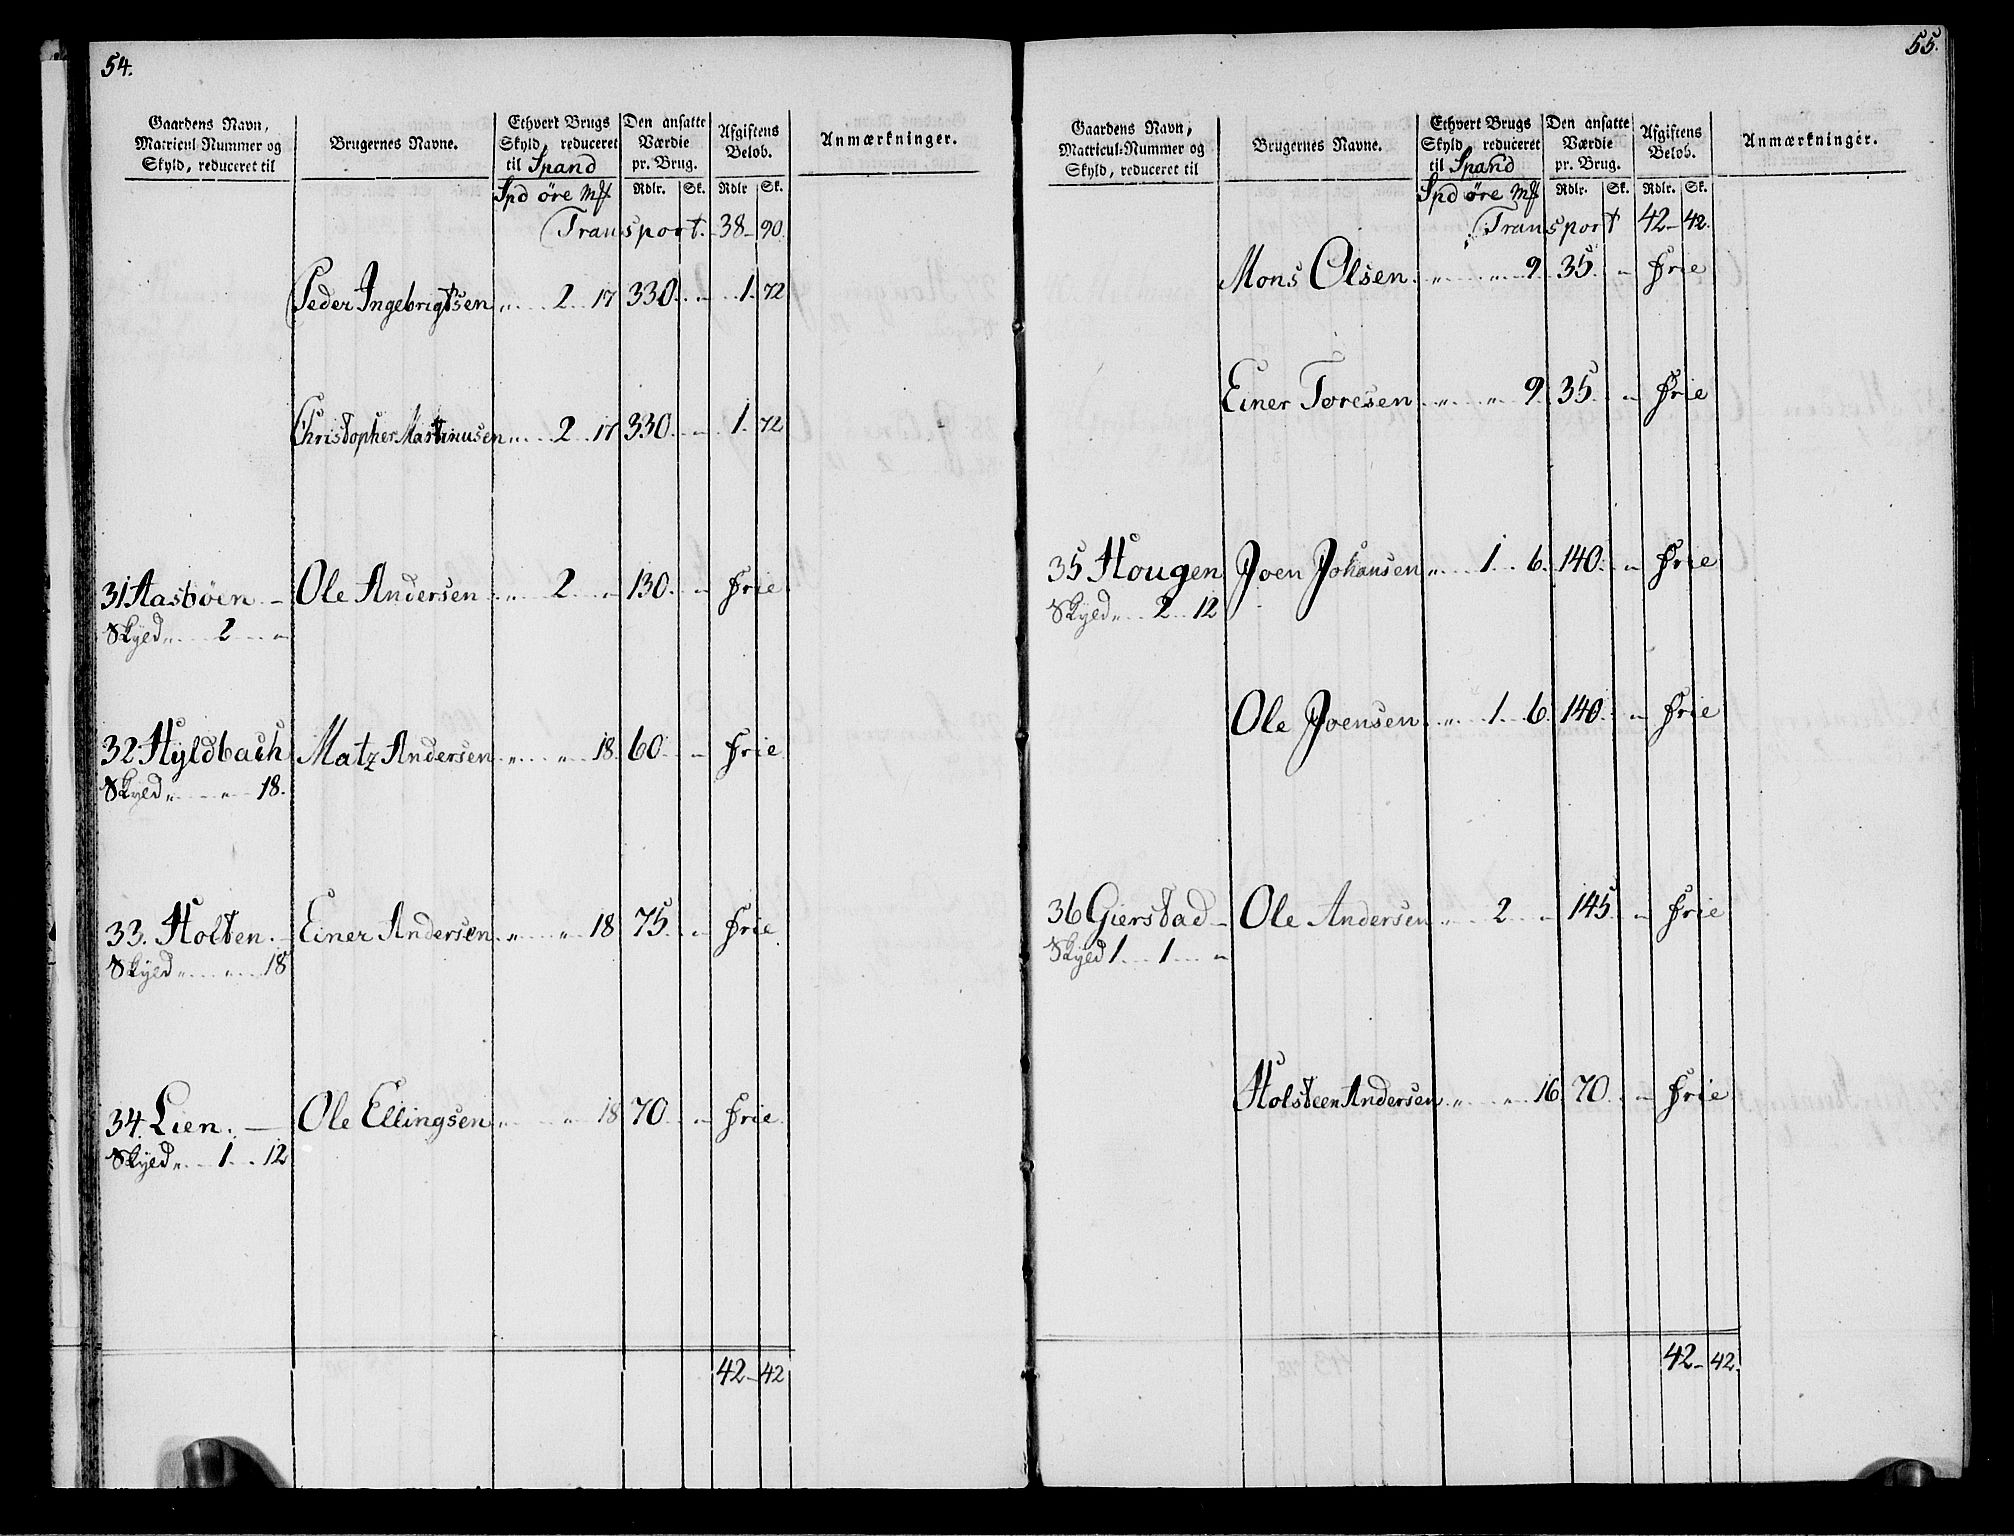 54.
Gaardens Navn, Matricul-Nummer og Skyld, reduceret til
Brugernes Navne.
Ethvert Brugs Skyld, reduceret til Spand
Den ansatte Værdie pr. Brug.
Afgiftens Beløb.
Anmærkninger.
Spd öre Mk Rdlr. Sk. Rdlr Sk.
(Transport. 38 90.
Peder Ingebrigtsen „ 2 17 330 „ 1 72
Christopher Martinusen „ 2 17 330 „ 1 72
31 Aasböen Ole Andersen „ 2 „ 130 „ Frie
Skyld „ 2 „
32 Hyldbach Matz Andersen „ „ 18 60 „ Frie
Skyld „ „ 18.
33. Holten. Einer Andersen „ „ 18 75 „ Frie
Skyld „ „ 18
34. Lien. Ole Ellingsen „ „ 18 70 „ Frie
Skyld „ 1 12
42 42
55.
Gaardens Navn, Matricul-Nummer og Skyld, reduceret til
Brugernes Navne.
Ethvert Brugs Skyld, reduceret til Spand
Den ansatte Værdie pr. Brug.
Afgiftens Beløb.
Anmærkninger.
Spd öre Mk Rdlr. Sk. Rdlr. Sk.
(Transport 42 42.
Mons Olsen „ „ 9 35 „ Frie
Einer Toresen „ „ 9 35 „ Frie
35 Hougen Joen Johansen „ 1 6 140 „ Frie
Skyld „ 2 12
Ole Joensen „ 1 6 140 „ Frie
36 Gierstad Ole Andersen „ 2 „ 145 „ Frie
Skyld 1 1 „
Holsteen Andersen „ „ 16 70 „ Frie
42 42.